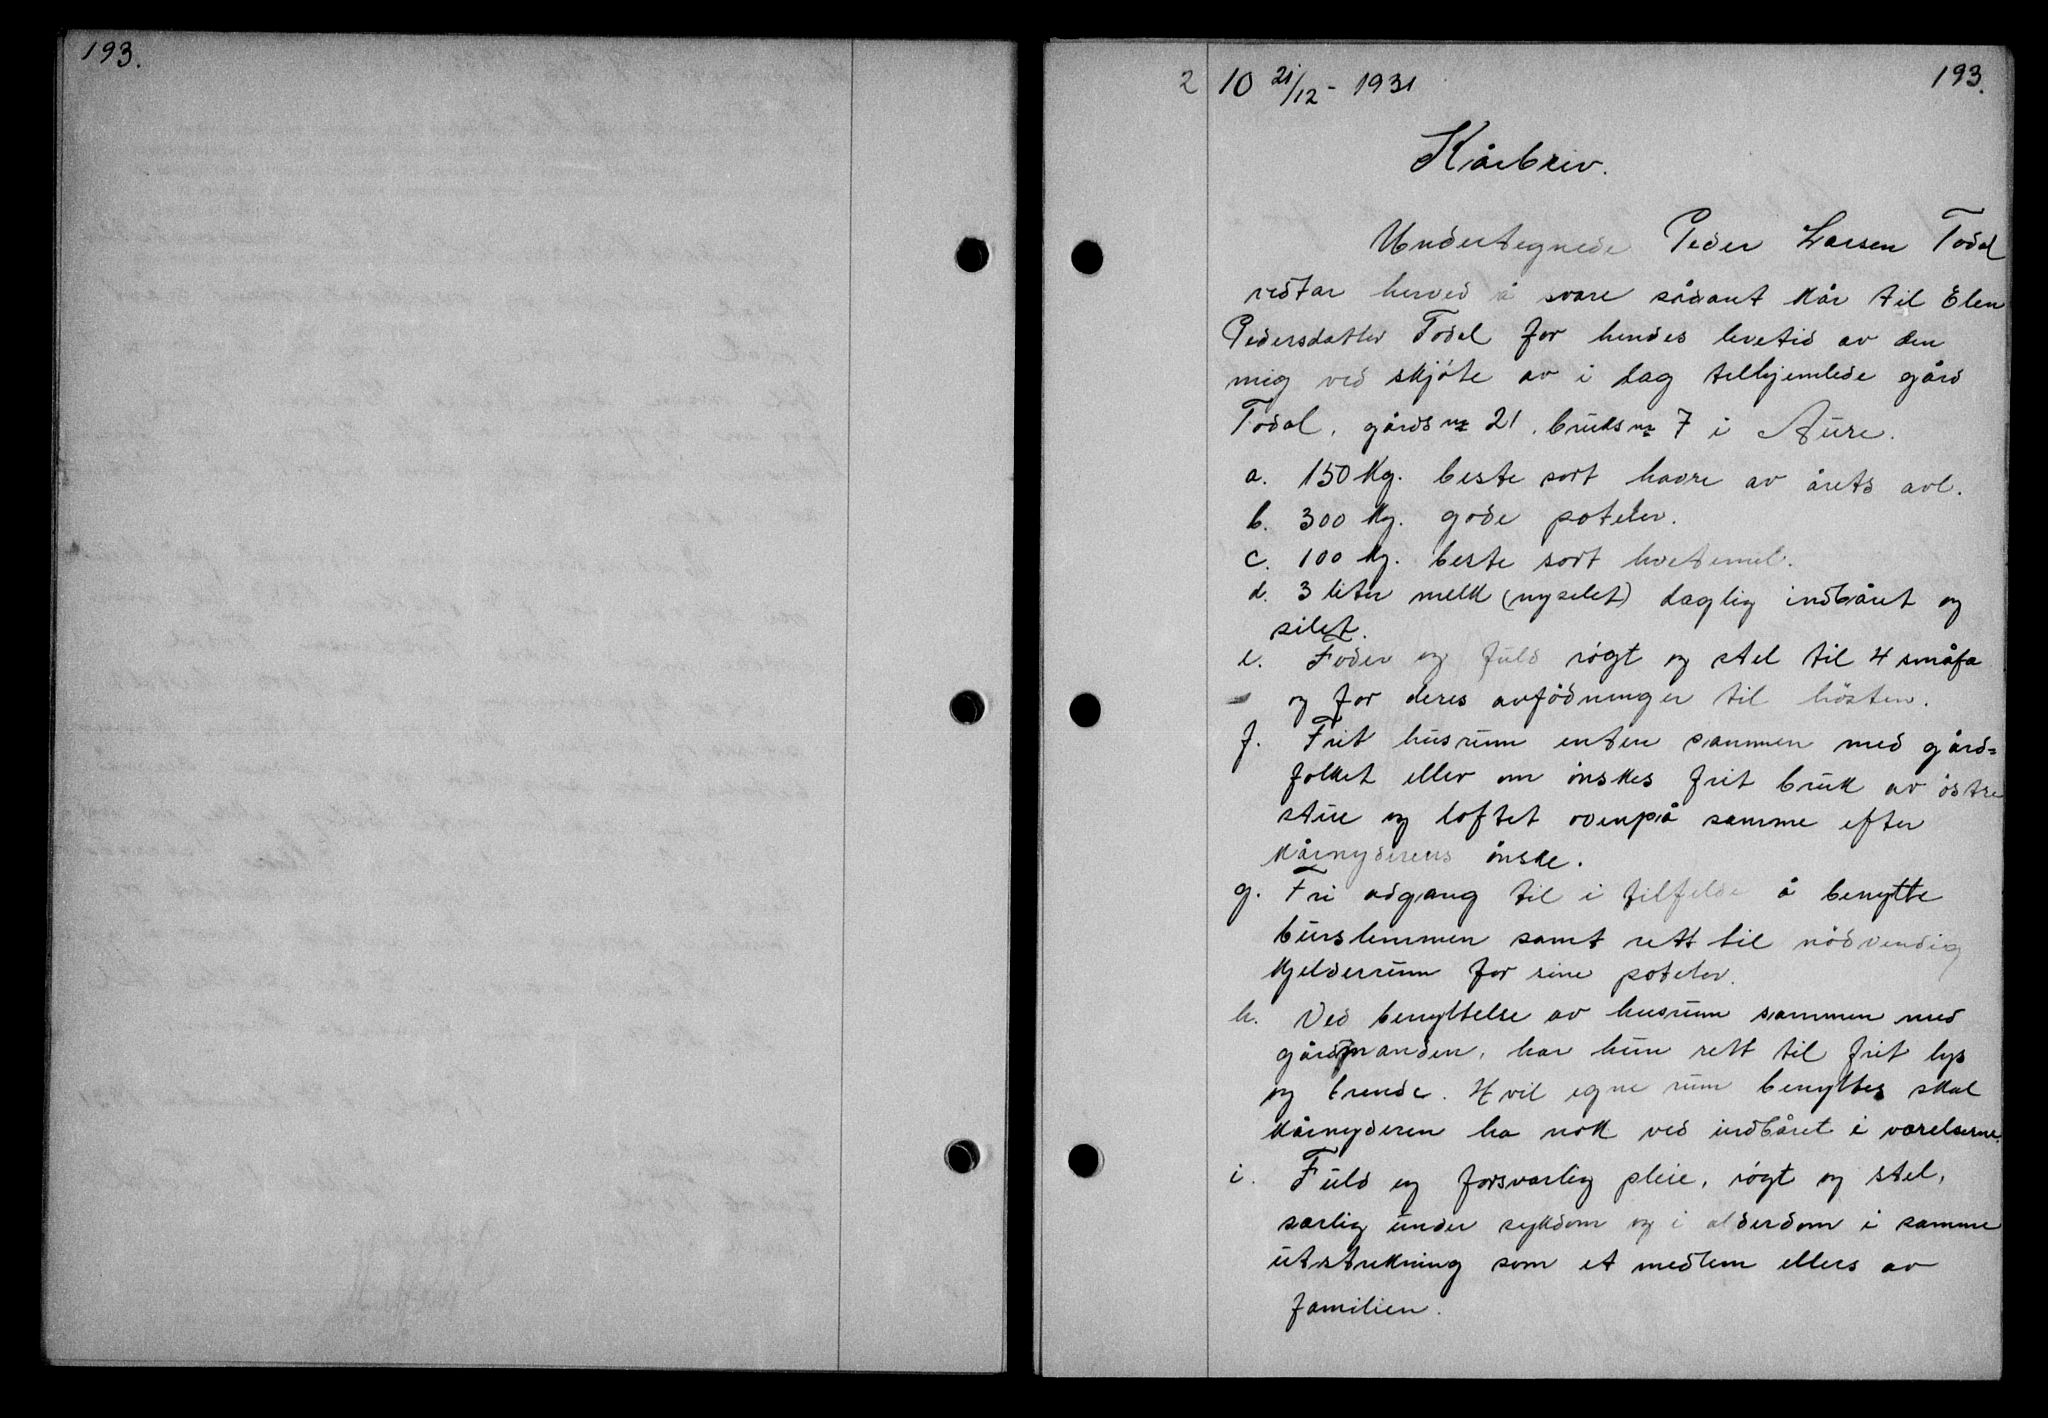 193.
2 10 21/12 - 1931
193.
Kårbriv.
Undertegnede Peder Larsen Todal
vedtar herved å svare sådant kår til Elen
Pedersdatter Todal for hendes levetid av den
mig ved skjöte av i dag tilhjemlede gård
Todal, gårds nr 21, bruks nr 7 i Aure.
a. 150 kg. beste sort havre av årets avl.
b. 300 kg. gode poteter.
c. 100 kg. beste sort hvetemel.
d. 3 liter melk (nysilet) daglig indbåret og
silet.
e. Foder og fuld rögt og stel til 4 småfa
og for deres avfödninger til hösten.
f. Frit husrum enten sammen med gård=
folket eller om önskes frit bruk av östre
stue og loftet ovenpå samme efter
kårnyderens önske.
g. Fri adgang til i tilfelde å benytte
burslemmen samt rett til nödvendig
kjelderrum for sine poteter.
h. Ved benyttelse av husrum sammen med
gårdmanden, har hun rett til frit lys
og brende. Hvil egne rum benyttes skal
kårnyderen ha nok ved indbåret i værelserne.
i. Fuld og forsvarlig pleie, rögt og stel,
særlig under sykdom og i alderdom i samme
utstrekning som et medlem ellers av
familien.